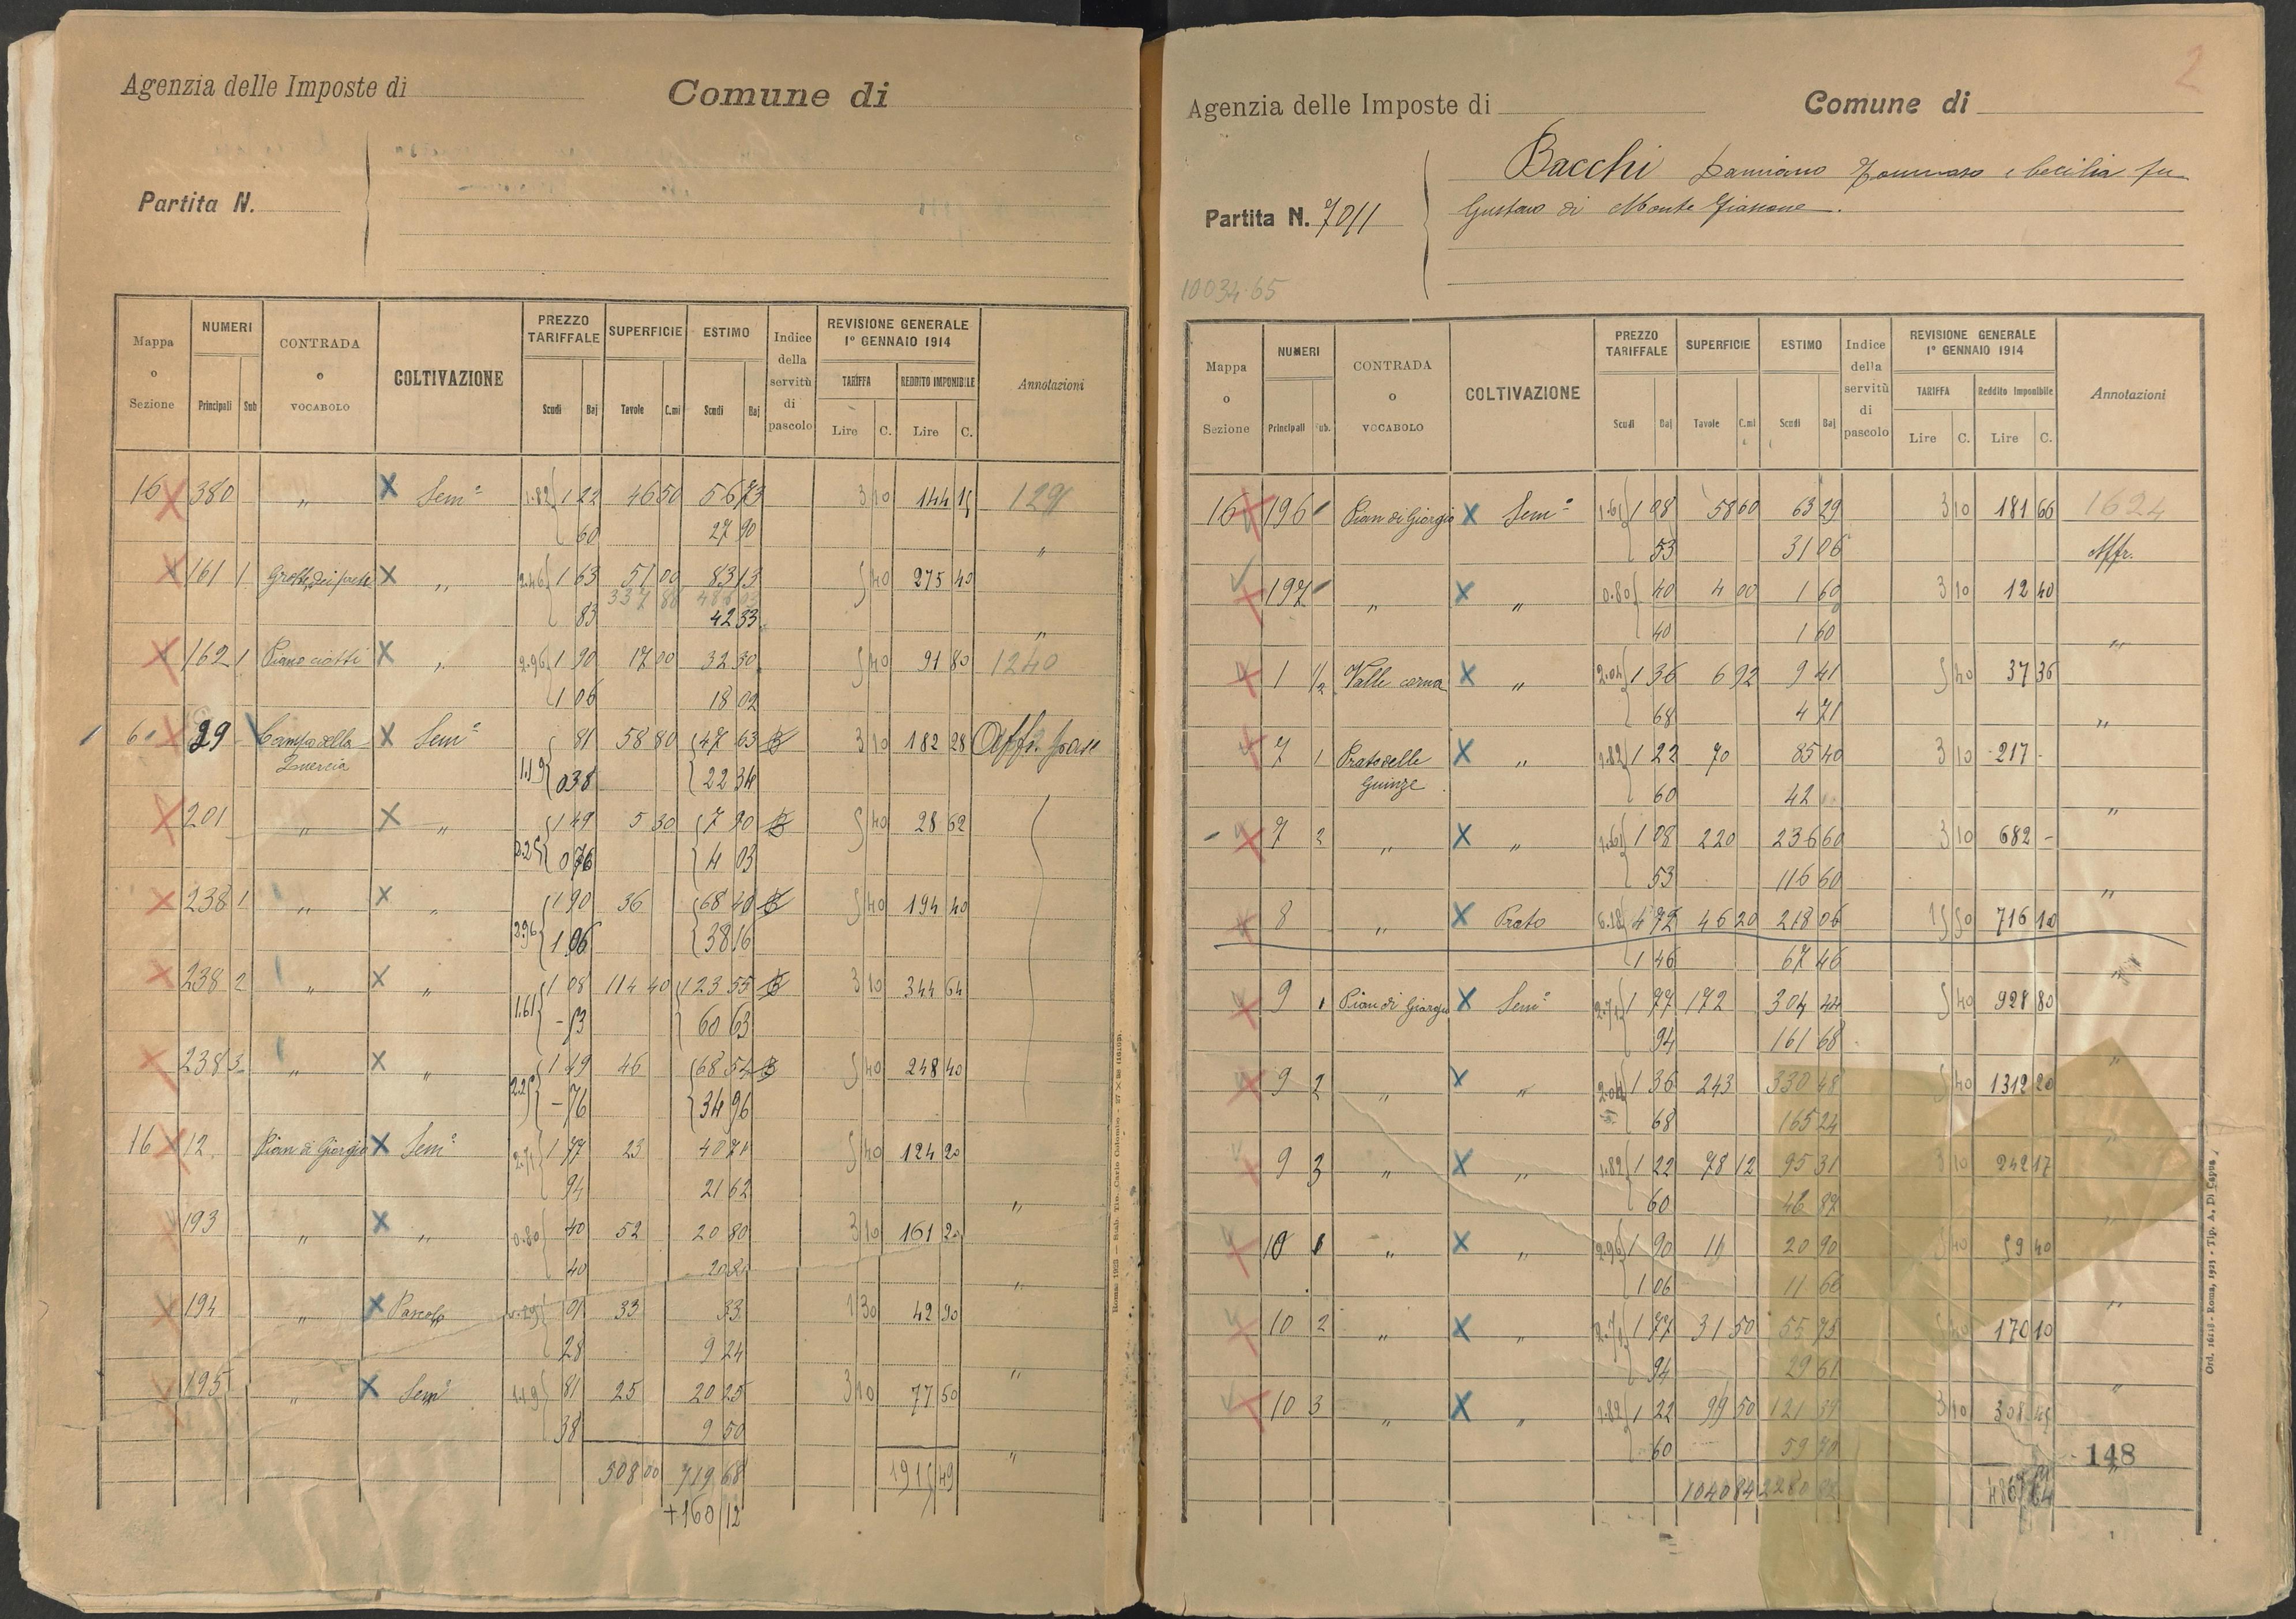 Agenzia delle Imposte di
Comune di
Partita N.
Mappa o Sezione | NUMERI Principali Sub | CONTRADA o VOCABOLO | COLTIVAZIONE | PREZZO TARIFFALE Scudi Baj | SUPERFICIE Tavole C.mi | ESTIMO Scudi Baj | Indice della servitù di pascolo | REVISIONE GENERALE 1º GENNAIO 1914 TARIFFA Lire C. REDDITO IMPONIBILE Lire C. | Annotazioni
16 X 380 " X Sem.º 1.82 1 22 46 50 56 73 3 10 144 15 129
60 27 90
"
X 161 1 X " 2.46 1 63 51 00 83 13 5 40 275 40
337 80
83 42 33
"
X 162 1 Piano ciotti X " 2.96 1 90 17 00 32 30 5 40 91 80 1240
1 06 18 02
6 X 29 Campo della X Sem.º 81 58 80 47 63 3 10 182 28
Quercia 1.19 0 38 22 34
X 201 " X " 1 49 5 30 7 90 5 40 28 62
2.25 0 76 4 03
X 238 1 " X " 1 90 36 68 40 5 40 194 40
2.96 1 06 38 16
X 238 2 " X " 1 08 114 40 123 55 3 10 344 64
1.61 - 53 60 63
X 238 3 " X " 1 49 46 68 54 5 40 248 40
2.25 - 76 34 96
16 X 12 Pian di Giorgio X Sem.º 2.71 1 77 23 40 71 5 40 124 20
94 21 62
"
X 193 " X " 0.80 40 52 20 80 3 10 161 20
40 20 80
"
X 194 " X Pascolo 0.29 01 33 33 1 30 42 90
28 9 24
"
X 195 " X Sem.º 1.19 81 25 20 25 3 10 77 50
38 9 50
"
508 00 719 68 1915 49
+160 12
Roma 1923 — Stab. Tip. Carlo Colombo
2
Agenzia delle Imposte di
Comune di
Bacchi Damiano Tommaso e Cecilia fu
Partita N. 7011
Gustavo di Monte Giasone.
10034.65
Mappa o Sezione | NUMERI Principali Sub. | CONTRADA o VOCABOLO | COLTIVAZIONE | PREZZO TARIFFALE Scudi Baj | SUPERFICIE Tavole C.mi | ESTIMO Scudi Baj | Indice della servitù di pascolo | REVISIONE GENERALE 1º GENNAIO 1914 TARIFFA Lire C. Reddito Imponibile Lire C. | Annotazioni
16 X 196 Pian di Giorgio X Sem.º 1.61 1 08 58 60 63 29 3 10 181 66 1624
53 31 06 Affr.
X 197 " X " 0.80 40 4 00 1 60 3 10 12 40
40 1 60
"
X 1 1/2 X " 2.04 1 36 6 92 9 41 5 40 37 36
68 4 71
"
X 7 1 Prato delle X " 1.82 1 22 70 85 40 3 10 217 -
Guinze 60 42
"
X 7 2 " X " 1.61 1 08 220 236 60 3 10 682 -
53 116 60
"
X 8 " X Prato 6.18 4 72 46 20 218 06 15 50 716 10
1 46 67 46
"
X 9 1 Pian di Giorgio X Sem.º 2.71 1 77 172 304 44 5 40 928 80
94 161 68
"
X 9 2 " X " 2.04 1 36 243 330 48 5 40 1312 20
68 165 24
"
X 9 3 " X " 1.82 1 22 78 12 95 31 3 10 242 17
60 46 87
"
X 10 1 " X " 2.96 1 90 11 20 90 5 40 59 40
1 06 11 66
"
X 10 2 " X " 2.71 1 77 31 50 55 75 5 40 170 10
94 29 61
"
X 10 3 " X " 1.82 1 22 99 50 121 39 3 10 308 45
60 59 70
148
1040 84
Ord. 16218 - Roma, 1923 - Tip. A. Di Capua